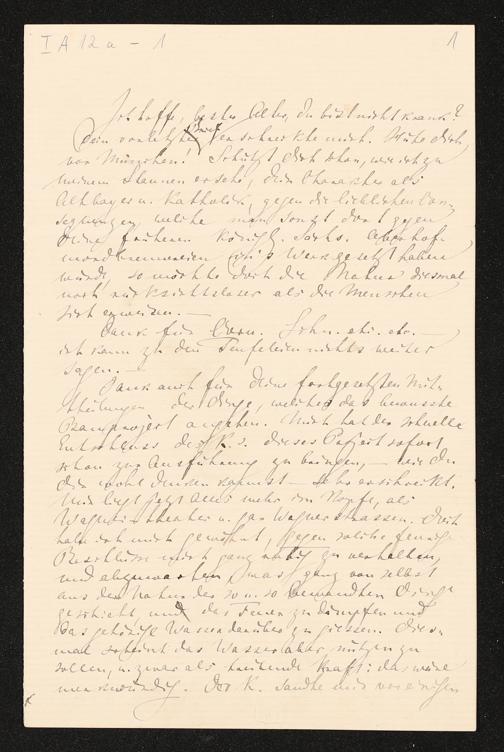 I A 12a – 1
1
Ich hoffe, bester Alter, du bist nicht krank?
Dein vorletzter Brief erschreckte mich. Hüte dich
vor München! Schützt dich schon, wie ich zu
meinem Staunen ersehe, dein Charakter als
Altbayer u. Katholik, gegen die lieblichen
welche man sonst dort gegen
deine früheren Königl. Sächs.
ins Werk gesetzt haben
würde, so möchte doch die Natur diesmal
noch rücksichtsloser als die Menschen
sich erweisen. —
Dank für Corn. Sohn. etc. etc. —
ich kann zu den Teufeleien nichts weiter
sagen. —
Dank auch für deine fortgesetzten Mit-
theilungen der Dinge, welche das bewusste
Bauproject angehen. Mich hat der schnelle
Entschluss des K's. dieses Project sofort
schon zur Ausführung zu bringen, — wie du
dir wohl denken kannst — sehr erschreckt.
Mir liegt jetzt alles mehr im Kopfe, als
Wagnertheater u. gar Wagnerstrassen. Doch
habe ich mich gewöhnt, gegen solche
Beschlüsse mich ganz ruhig zu verhalten,
und abzuwarten, was ganz von selbst
aus der Natur der so u. so bewandten Dinge
geschieht und das Feuer zu dämpfen und
das gehörige Wasser darüber zu giessen. Dies-
mal scheint das Wasser aber nützen zu
sollen, u. zwar als Kraft: das wäre
merkwürdig. Der K. sandte mir vor einigen